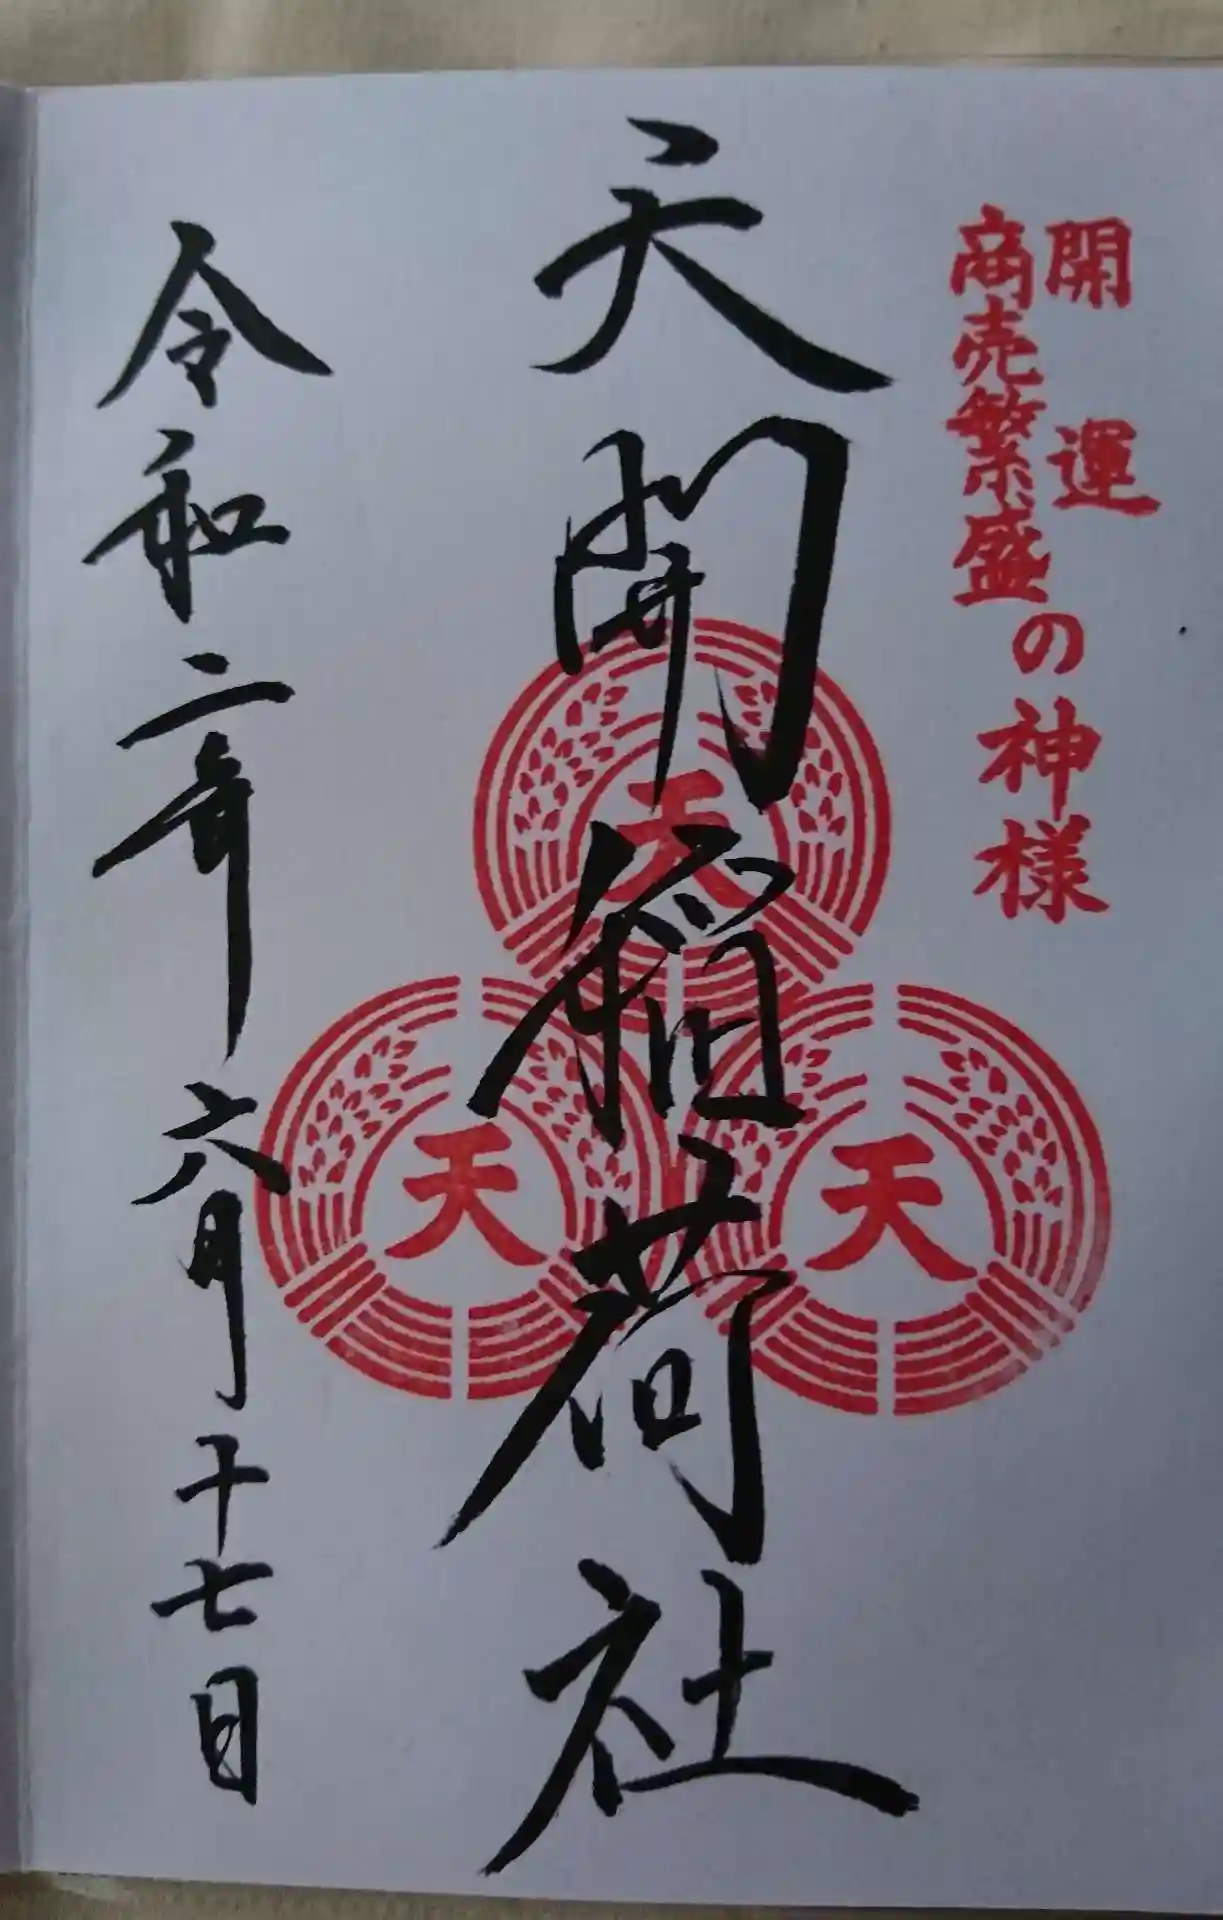 開運
商売繁盛
の神様
天開稲荷社
天
天
天
令和二年六月十七日